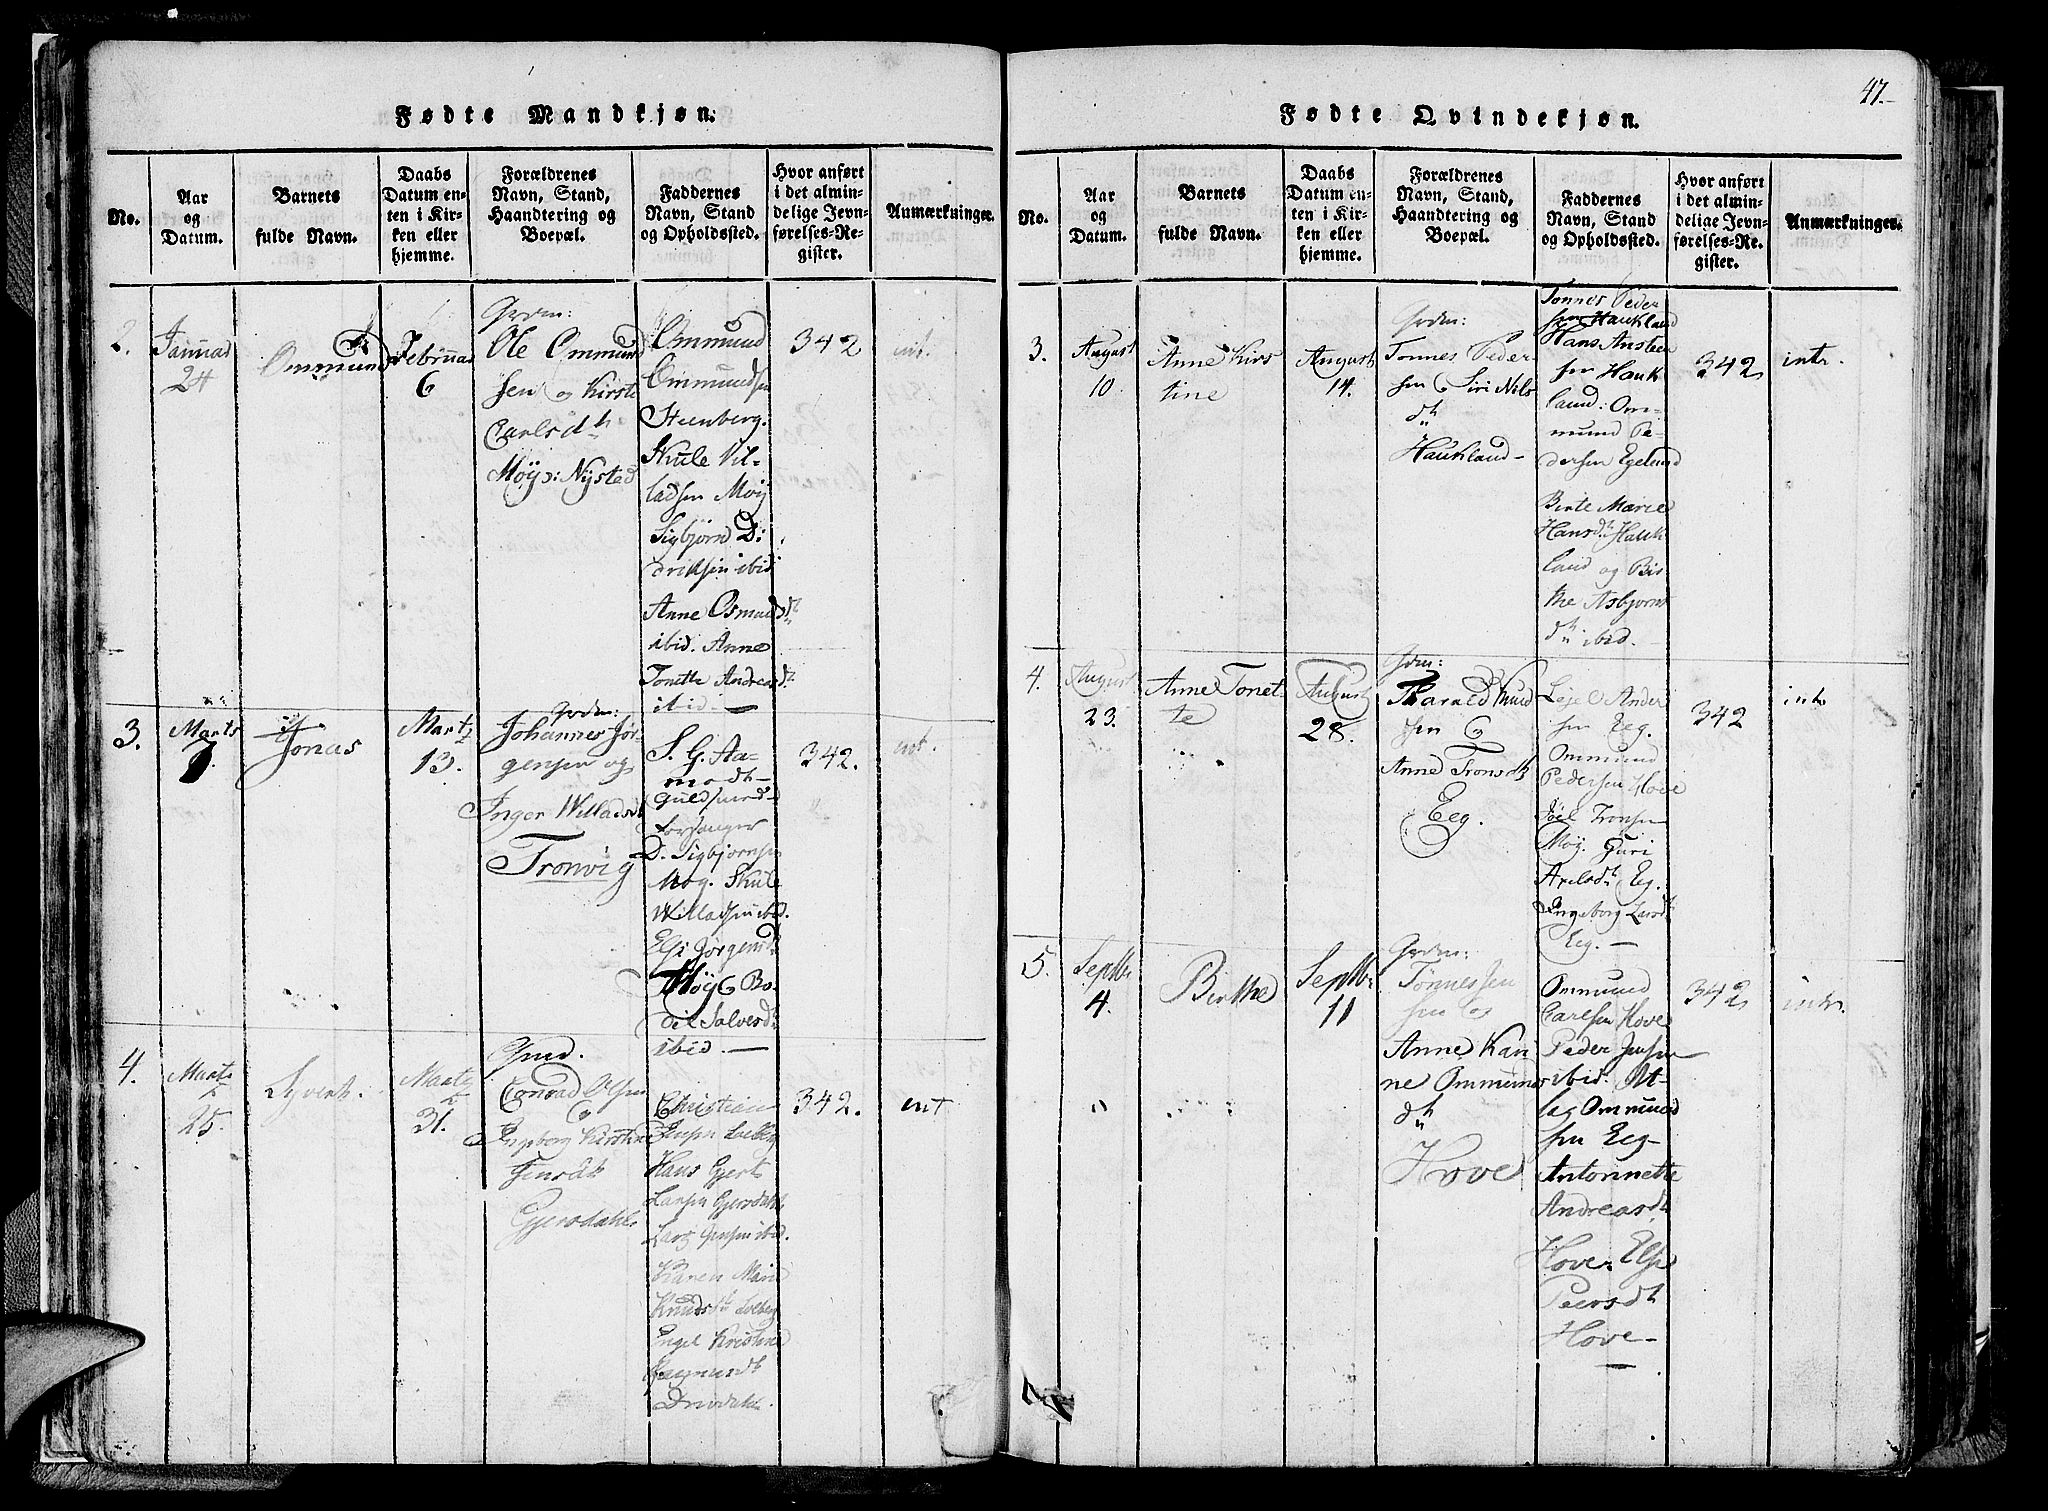 Fødte Mandkjøn.
No.
Aar og Datum.
Barnets fulde Navn.
Daabs Datum enten i Kirken eller hjemme.
Forældrenes Navn, Stand, Haandtering og Boepæl.
Faddernes Navn, Stand og Opholdssted.
Hvor anført i det almindelige Jevnførelses-Register.
Anmærkninger.
2.
Januar
24
Ommund
Februar
6
Grdm:
Ole Ommund
sen og Kirste
Carlsdtr
Møy: Nysted
Ommund
Ommundsen
Steenberg.
Skule Vil-
ladsen Møy
Sigbjørn Di
driksen ibid
Anne Osmudsdtr
ibid. Anne
Tonette Andreasdtr
ibid. —
342
int.
3.
Marts
7.
Jonas
Marts
13.
Grdm:
Johannes Jør-
gensen og
Inger Willadsdtr
Tronvig
S. G. Aa-
modt—
Guldsmed
Forsanger
D. Sigbjørnsen
Møy. Skule
Willadsen ibid.
Elsi Jørgensdtr
Møy & Bo-
dil Salvesdtr
ibid. —
342.
int.
4.
Marts
25.
Syvert.
Marts
31.
Gmd.
Conrad Olsen
&
Ingeborg Kirstine
Jensdtr
Gjersdahl
Christian
Jensen
Hans Gjert
Larsen Gjersdahl
Lars Jensen ibid.
Karen Marie
Knudsdtr
Engel Kristine
342.
int
47.
Fødte Qvindekjøn.
No.
Aar og Datum.
Barnets fulde Navn.
Daabs Datum enten i Kirken eller hjemme.
Forældrenes Navn, Stand, Haandtering og Boepæl.
Faddernes Navn, Stand og Opholdssted.
Hvor anført i det almindelige Jevnførelses-Register.
Anmærkninger.
3.
August
10
Anne Kirs
tine
August
14.
Grdm:
Tonnes Peder
sen & Siri Nils
dtr
Haukland—
Tonnes Peder
sen Haukland
Hans Ansteen
sen Hauk
land: Om-
mund Pe-
dersen Egelund
Birte Marie
Hansdtr Hauk
land og Bir
the Asbjørns
dtr ibid.
342
intr.
4.
August
23.
Anne Tonet
te
August
28.
Grdm:
Tharald Knud
sen &
Anne Tronsdtr
Eeg.
Lejel Ander
sen Eeg.
Ommund
Pedersen Hove
Joel Tronsen
Moy. Guri
Axelsdtr Eeg.
Ingeborg Larsdtr
Eeg. —
342
intr
5.
Septbr
4.
Birthe
Septbr
11
Grdm:
Tønnes Jen
sen &
Anne Kari
ne Ommunds
dtr
Hove
Ommund
Carlsen Hove
Peder Jensen
ibid. At-
lag Ommund
sen Eeg—
Antonnette
Andreasdtr
Hove. Else
Peersdtr
Hove—
342
intr.